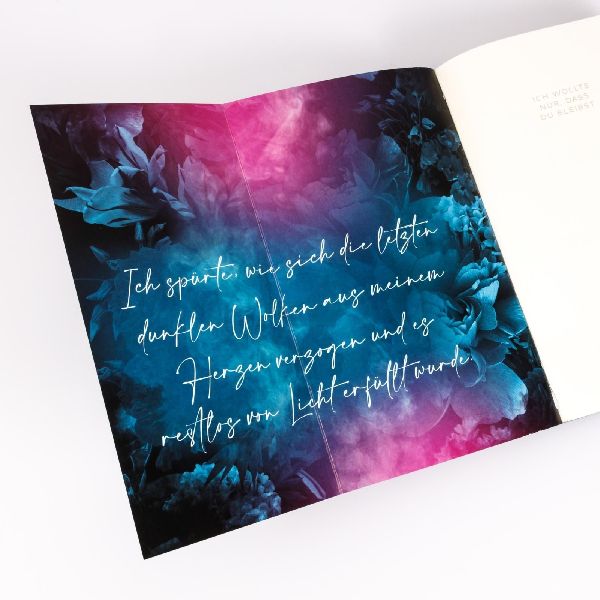 Ich spürte, wie sich die letzten
dunklen Wolken aus meinem
Herzen verzogen und es
restlos von Licht erfüllt wurde.
ICH WOLLTE
NUR, DASS
DU BLEIBST